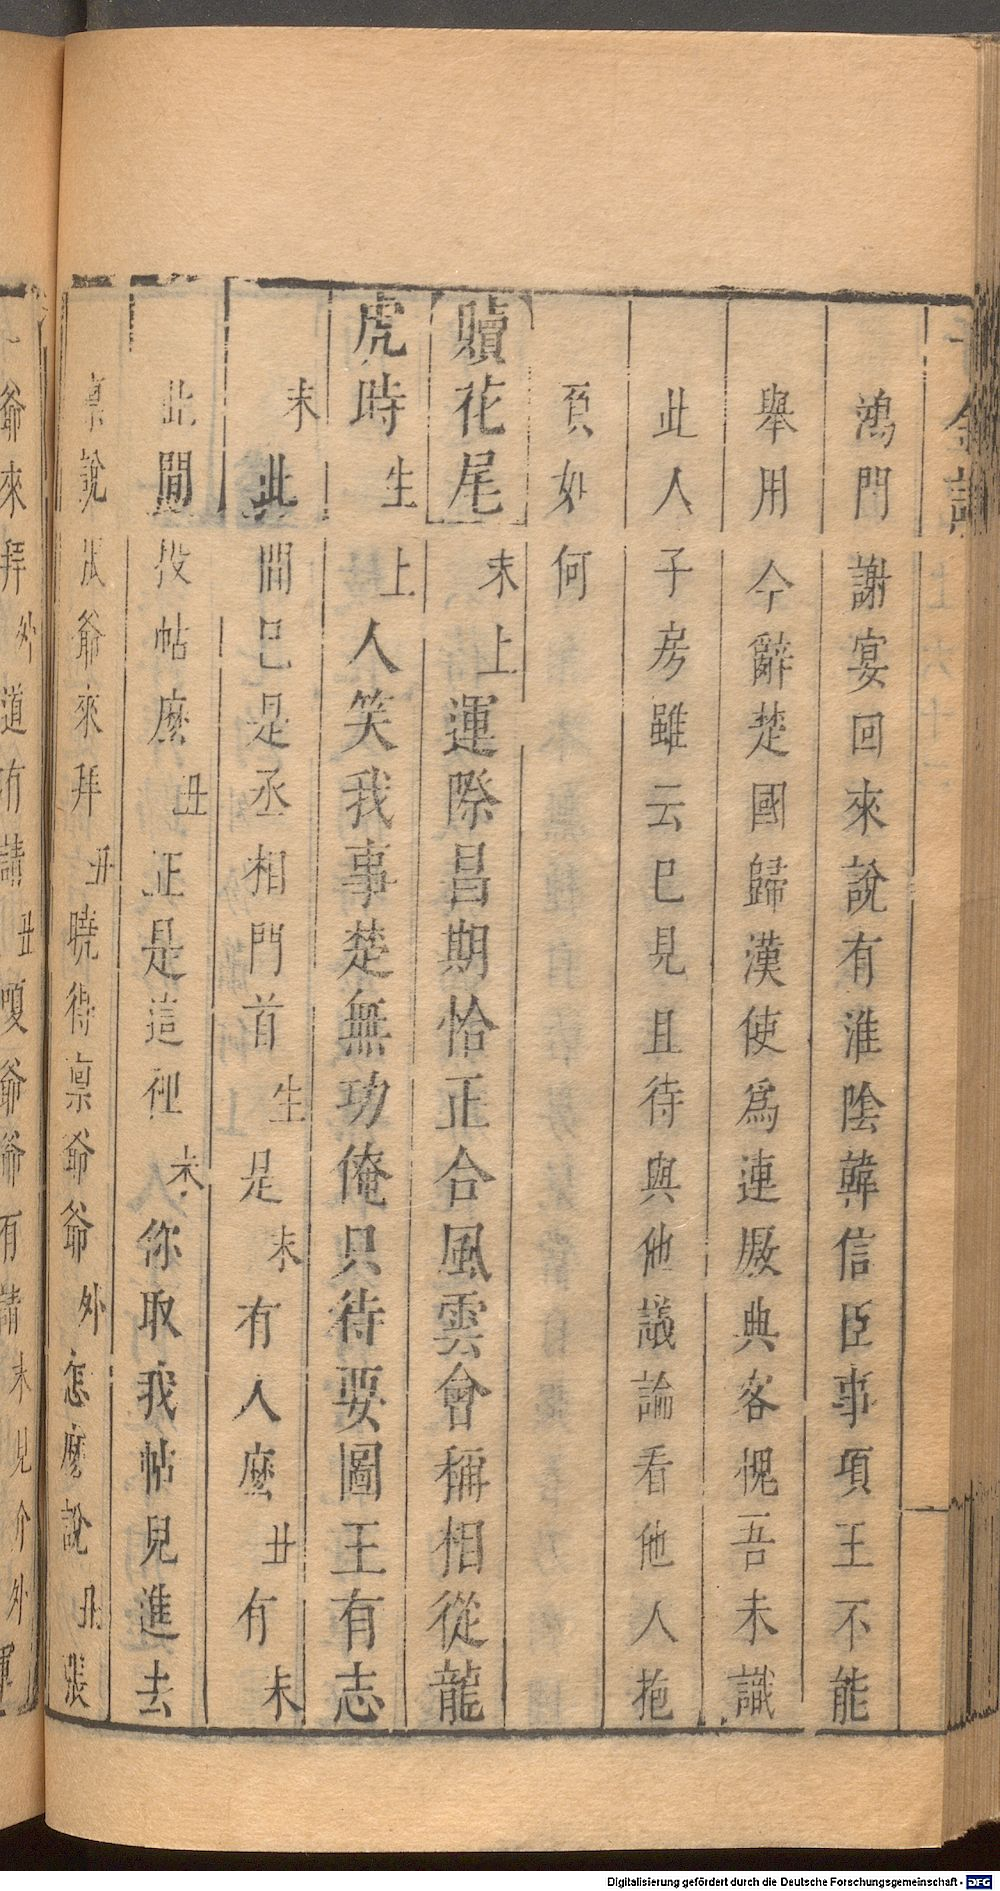 鴻門謝宴回來說有淮陰韓信臣事項王不能
舉用今辭楚國歸漢使爲連厫典客愧吾未識
此人子房雖云巳見且待與他議論看他人抱
負如何
賺花尾末上運際昌期恰正合風雲會稱相從龍
虎時生上人笑我事楚無功俺只待要圖王有志
末此間巳是丞相門首生是末有人麽丑有末
此間投帖麽丑正是這裡末你取我帖兒進去
禀說張爺來拜丑曉得禀爺爺外怎麽說丑張
爺來拜外道有請丑嗄爺爺有請末見介外
Digitalisierung gefördert durch die Deutsche Forschungsgemeinschaft - DFG